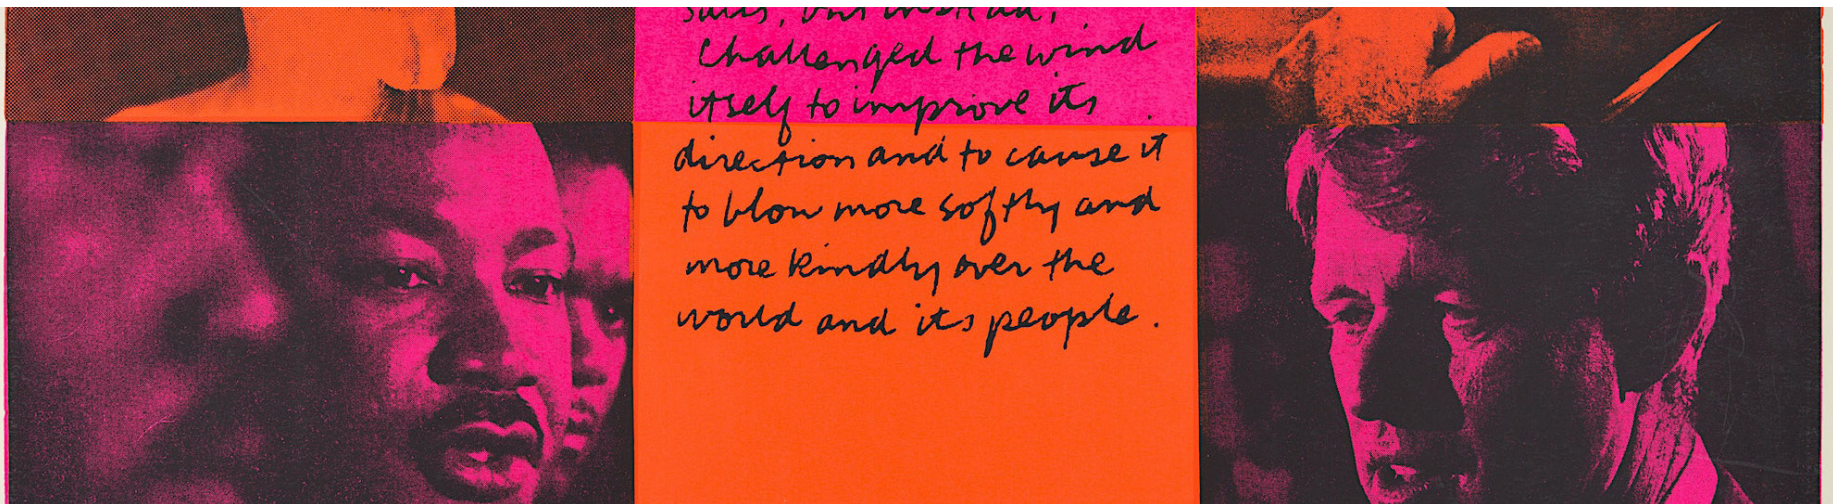 sails, but instead,
challenged the wind
itself to improve its
direction and to cause it
to blow more softly and
more kindly over the
world and its people.